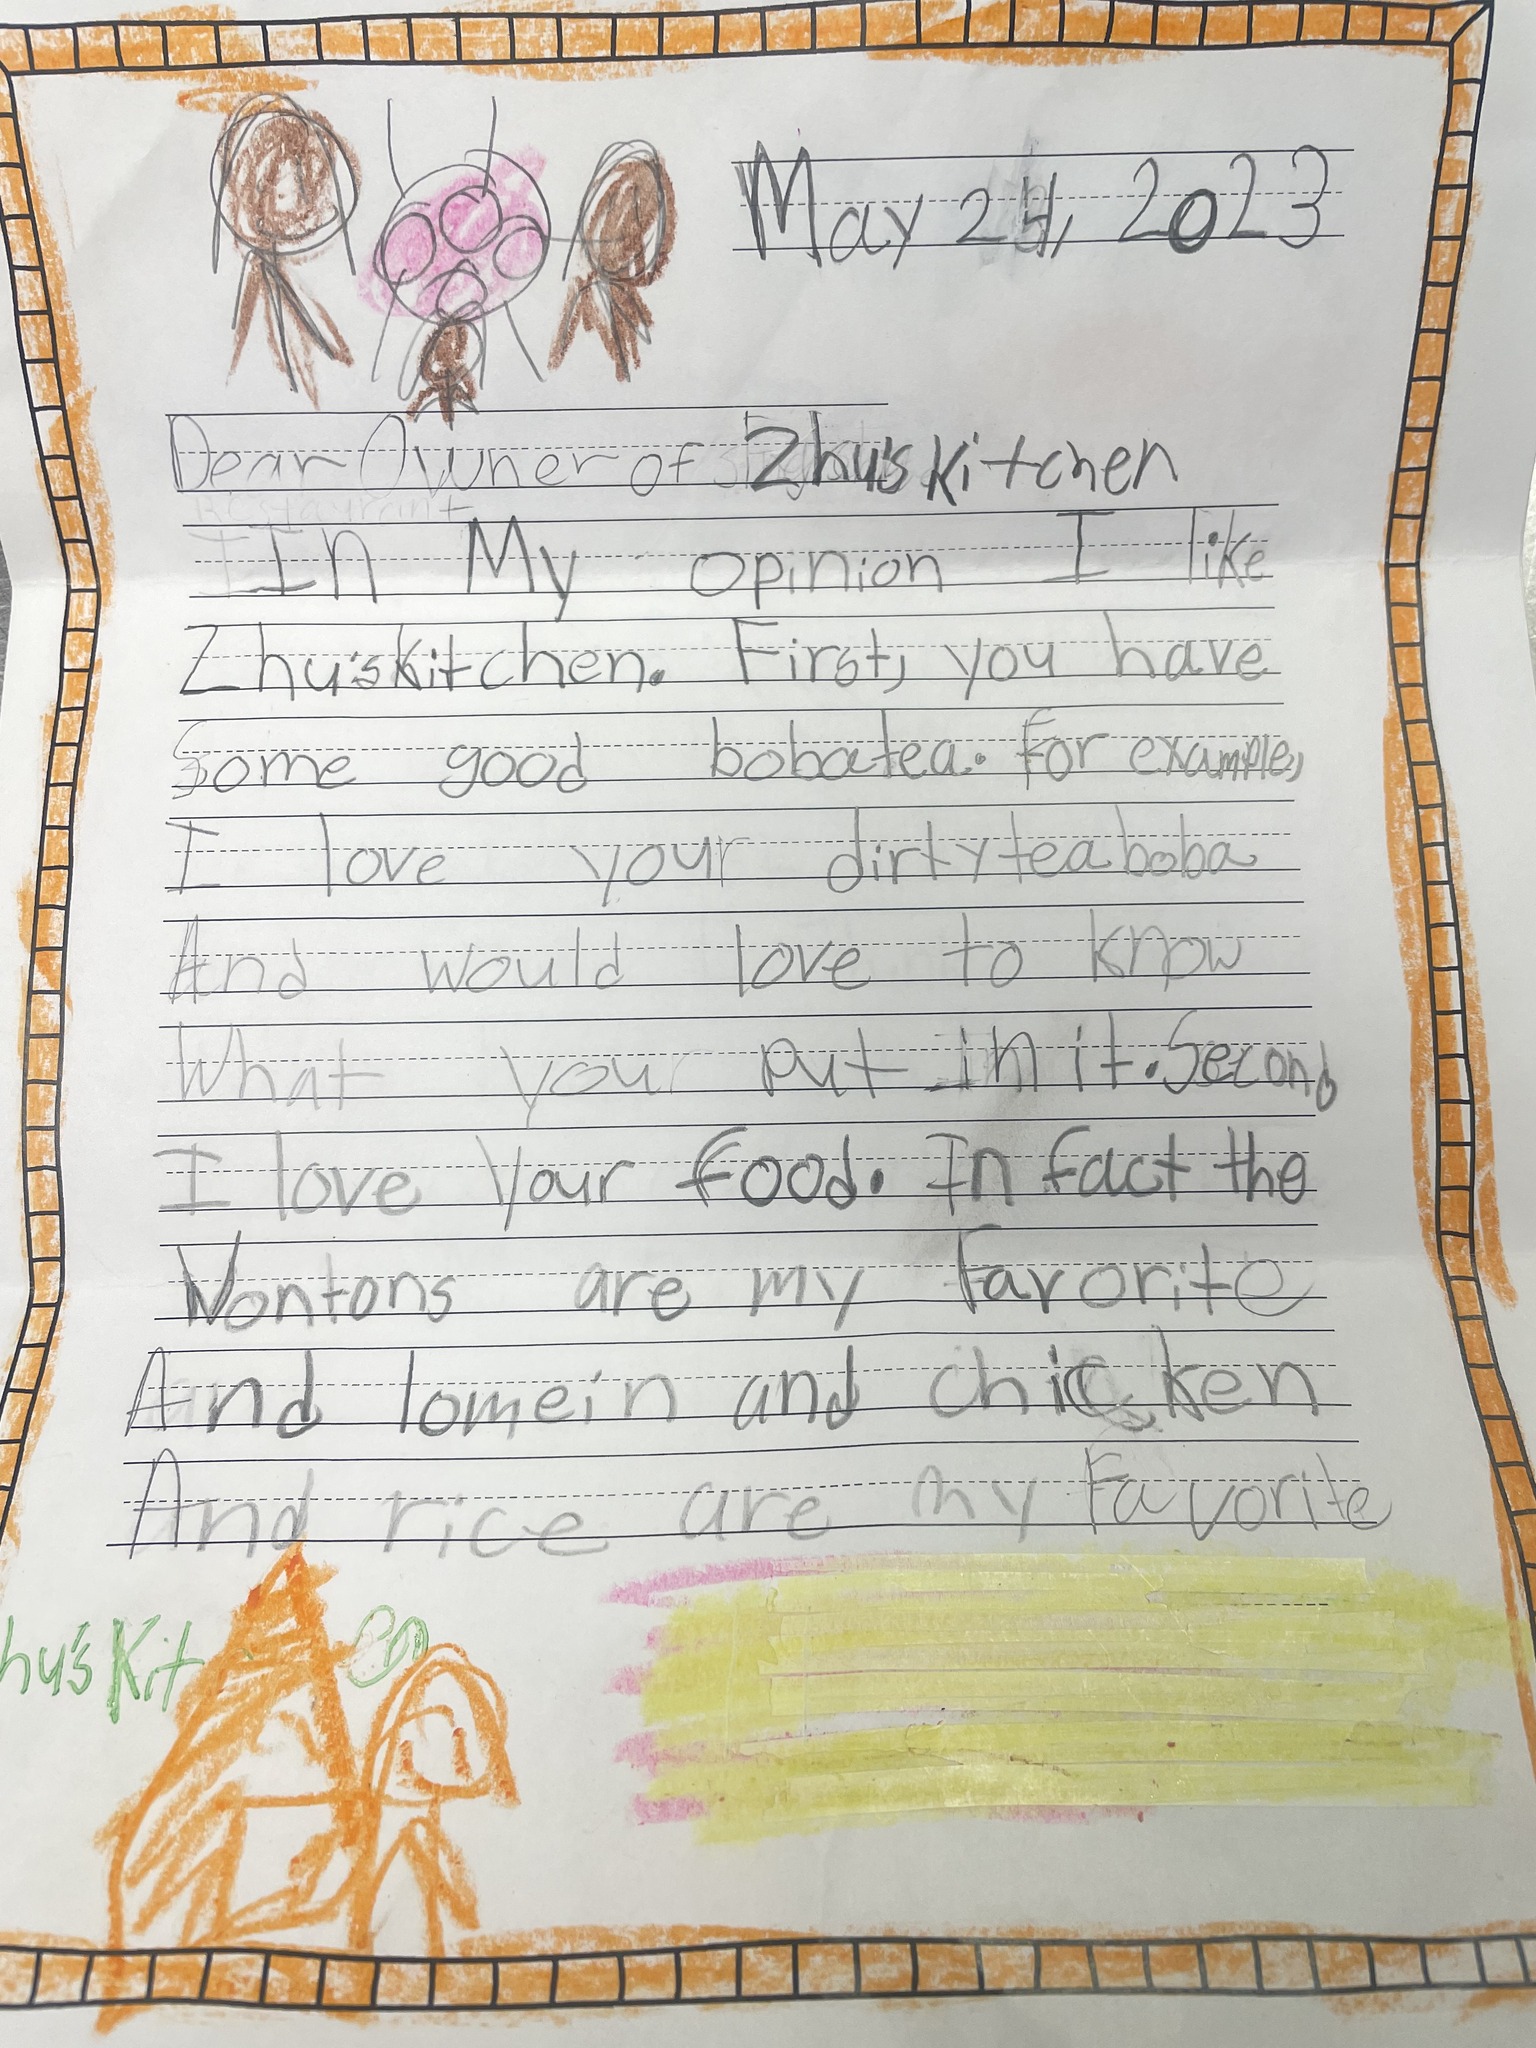 May 24, 2023
Dear Owner of Zhu's Kitchen
In My opinion I like
Zhu'sKitchen. First, you have
Some good bobatea. For example,
I love your dirtyteaboba
And would love to know
What your put in it. Second
I love your food. In fact the
Wontons are my Favorite
And lomein and chicken
And rice are my Favorite
hu's Kit